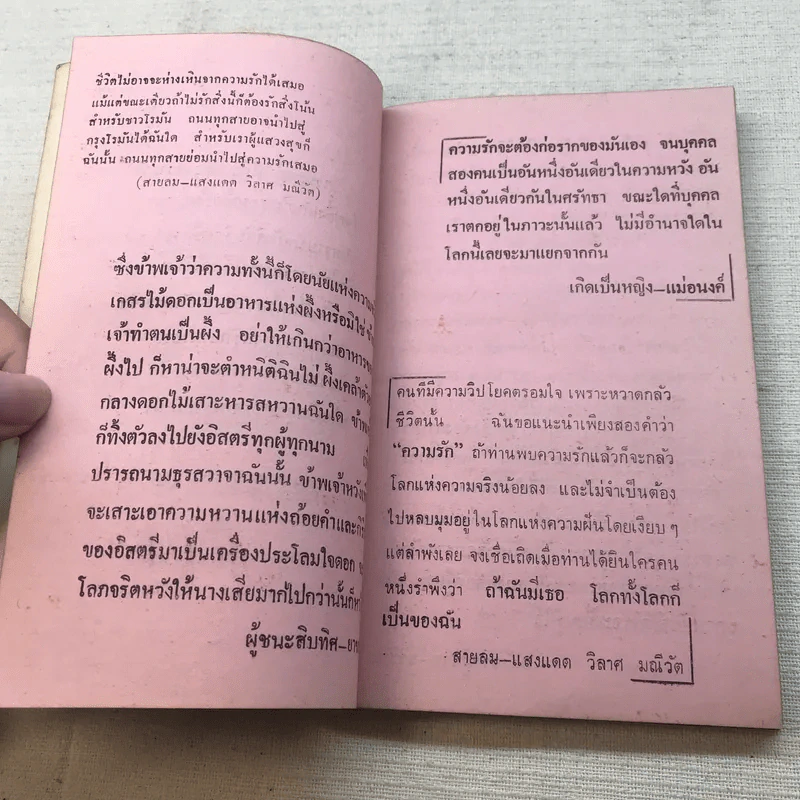 ชีวิตไม่อาจจะห่างเหินจากความรักได้เสมอ
แม้แต่ขณะเดียวถ้าไม่รักสิ่งนี้ก็ต้องรักสิ่งโน้น
สำหรับชาวโรมัน ถนนทุกสายอาจนำไปสู่
กรุงโรมันได้ฉันใด สำหรับเราผู้แสวงสุขก็
ฉันนั้น ถนนทุกสายย่อมนำไปสู่ความรักเสมอ
(สายลม–แสงแดด วิลาศ มณีวัต)
ซึ่งข้าพเจ้าว่าความทั้งนี้ก็โดยนัยแห่ง
เกสรไม้ดอกเป็นอาหารแห่งผึ้งหรือมิใช่
เจ้าทำตนเป็นผึ้ง อย่าให้เกินกว่าอาหาร
ผึ้งไป ก็หาน่าจะตำหนิติฉินไม่ ผึ้งเคล้า
กลางดอกไม้เสาะหารสหวานฉันใด
ก็ทิ้งตัวลงไปยังอิสตรีทุกผู้ทุกนาม
ปรารถนามธุรสวาจาฉันนั้น ข้าพเจ้าหวัง
จะเสาะเอาความหวานแห่งถ้อยคำและ
ของอิสตรีมาเป็นเครื่องประโลมใจดอก
โลภจริตหวังให้นางเสียมากไปกว่านั้นก็
ผู้ชนะสิบทิศ–
ความรักจะต้องก่อรากของมันเอง จนบุคคล
สองคนเป็นอันหนึ่งอันเดียวในความหวัง อัน
หนึ่งอันเดียวกันในศรัทธา ขณะใดที่บุคคล
เราตกอยู่ในภาวะนั้นแล้ว ไม่มีอำนาจใดใน
โลกนี้เลยจะมาแยกจากกัน
เกิดเป็นหญิง–แม่อนงค์
คนที่มีความวิปโยคตรอมใจ เพราะหวาดกลัว
ชีวิตนั้น ฉันขอแนะนำเพียงสองคำว่า
“ความรัก” ถ้าท่านพบความรักแล้วก็จะกลัว
โลกแห่งความจริงน้อยลง และไม่จำเป็นต้อง
ไปหลบมุมอยู่ในโลกแห่งความฝันโดยเงียบๆ
แต่ลำพังเลย จงเชื่อเถิดเมื่อท่านได้ยินใครคน
หนึ่งรำพึงว่า ถ้าฉันมีเธอ โลกทั้งโลกก็
เป็นของฉัน
สายลม–แสงแดด วิลาศ มณีวัต